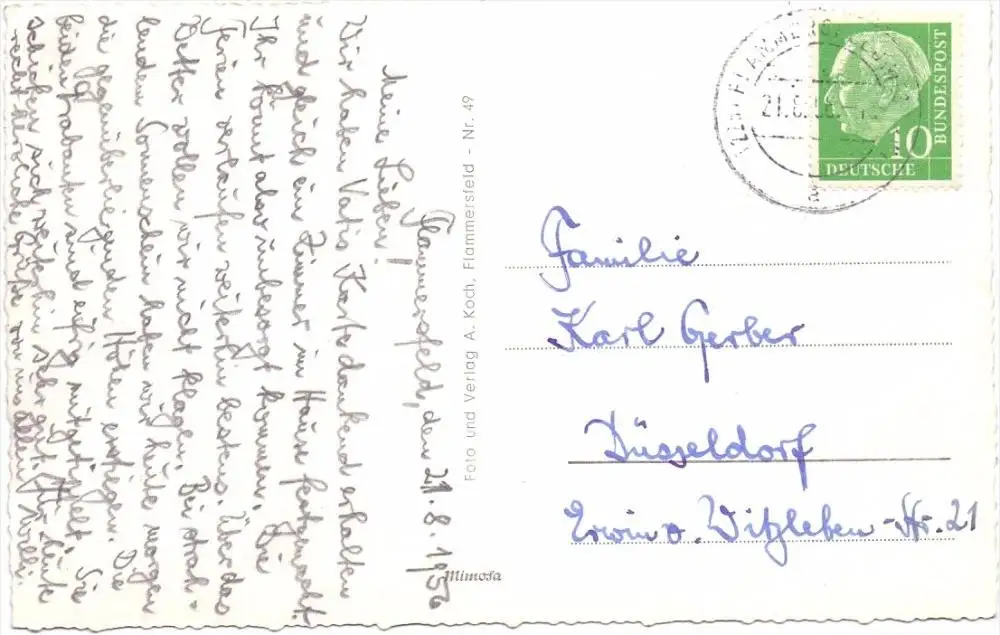 Flammersfeld, den 21.8.1956
Meine Lieben!
Wir haben Vatis Karte dankend erhalten
und gleich ein Zimmer im Hause festgemacht.
Ihr könnt also unbesorgt kommen. Die
Ferien verlaufen weiterhin bestens. Über das
Wetter wollen wir nicht klagen. Bei strah-
lendem Sonnenschein haben wir heute morgen
die gegenüberliegenden Höhen erstiegen. Die
beiden Trabanten sind eifrig mitgetippelt. Sie
schicken sich weiterhin sehr gut. Für heute
recht herzliche Grüße von uns allen
Foto und Verlag A. Koch, Flammersfeld - Nr. 49
Mimosa
FLAMMERSFELD
21.8.56
a
10
DEUTSCHE
BUNDESPOST
Familie
Karl Gerber
Düsseldorf
Erwin v. Witzleben-Str. 21